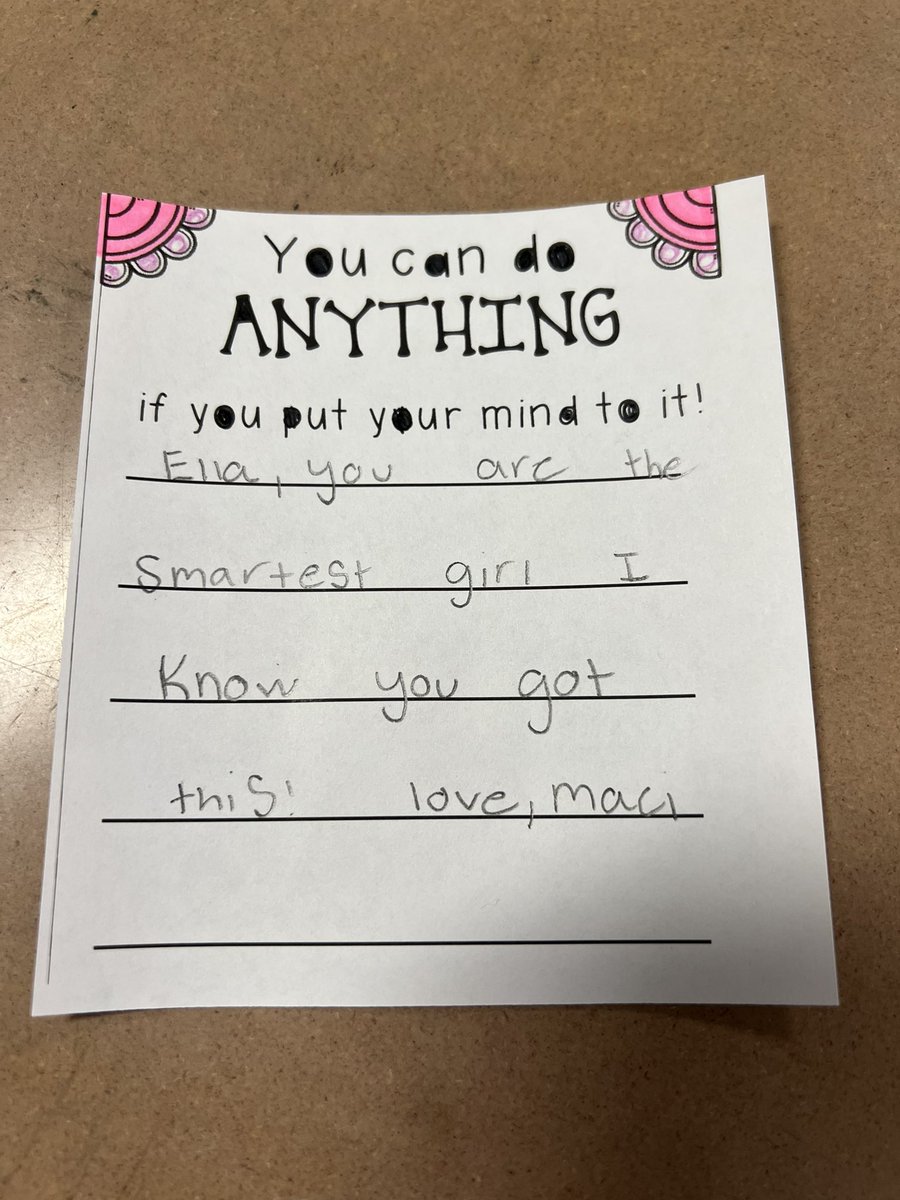 You can do
ANYTHING
if you put your mind to it!
Ella, you are the
Smartest girl I
Know you got
this! love, maci